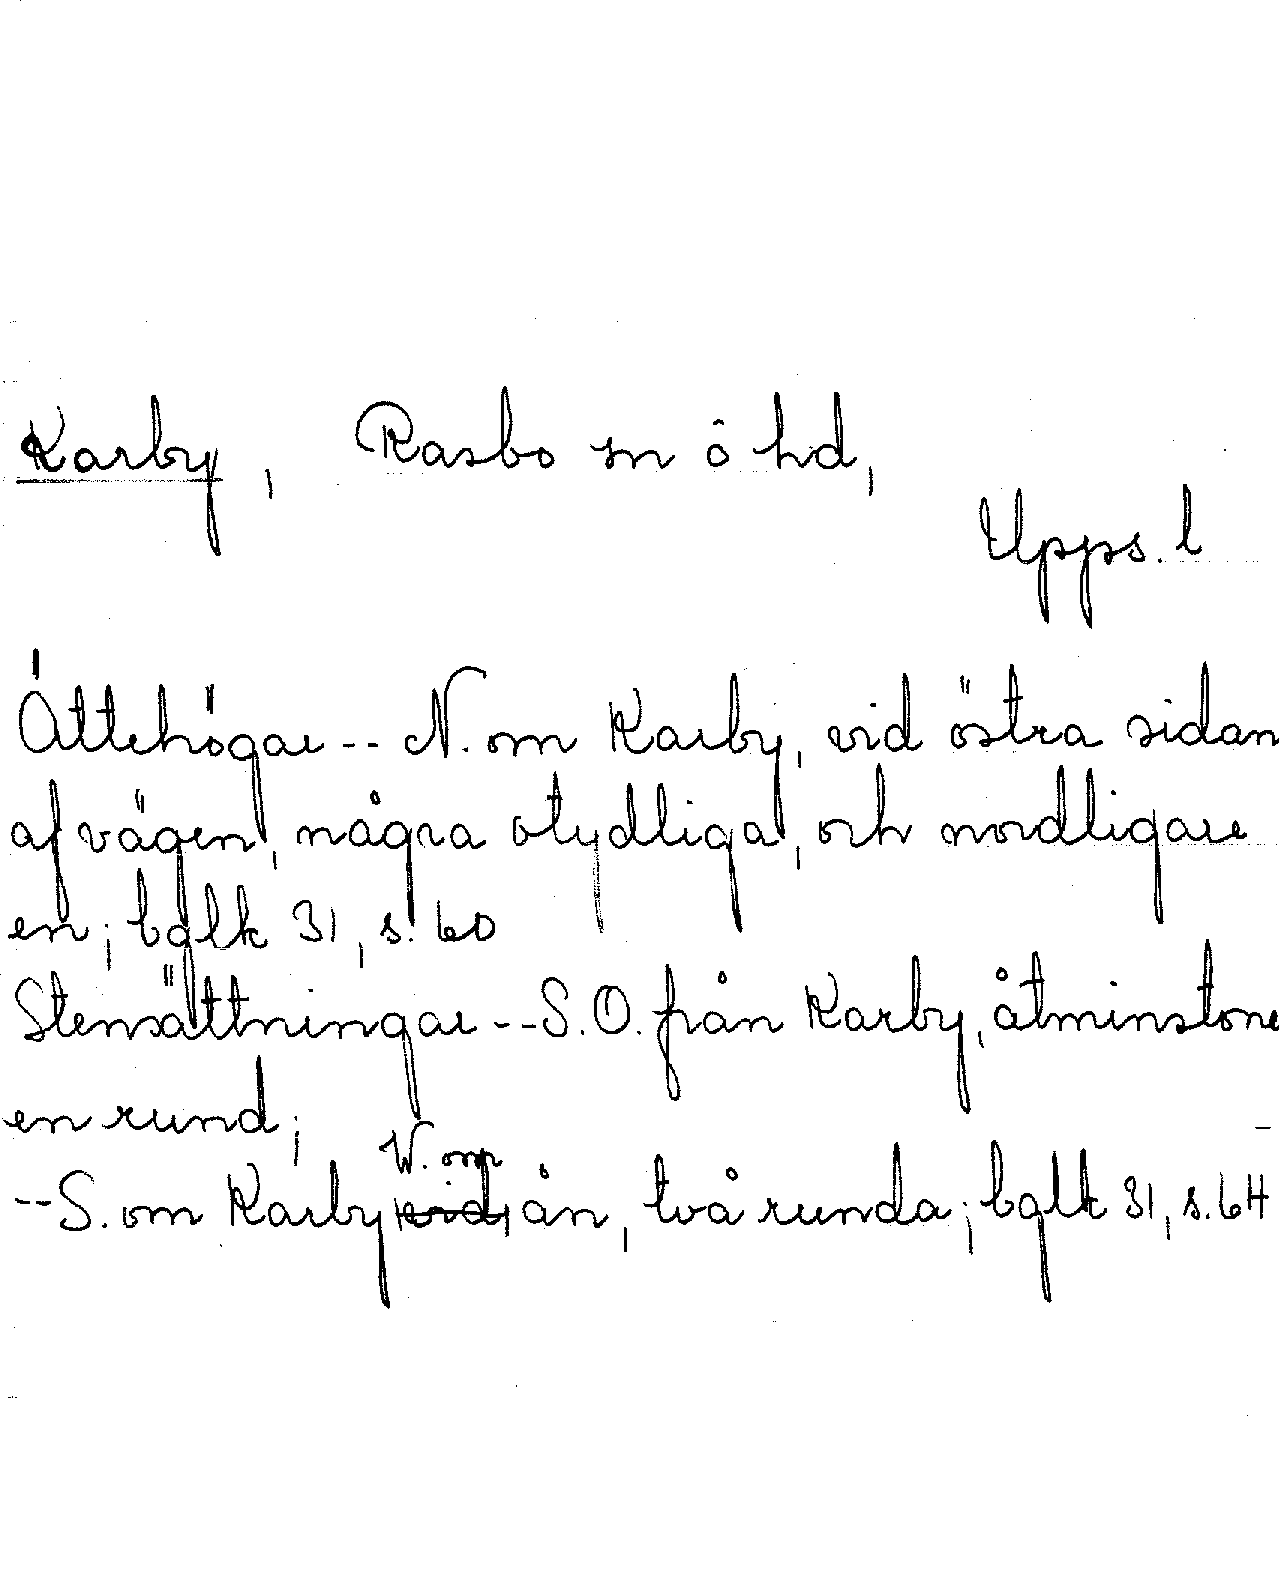 Karby, Rasbo sn o hd,
Upps. l
Ättehögar -- N. om Karby, vid östra sidan
af vägen, några otydliga, och nordligare
en; bglk 31, s. 60
Stensättningar -- S.O. från Karby, åtminstone
en rund;
W. om
-- S. om Karby vid, ån, två runda; bglk 31, s. 64